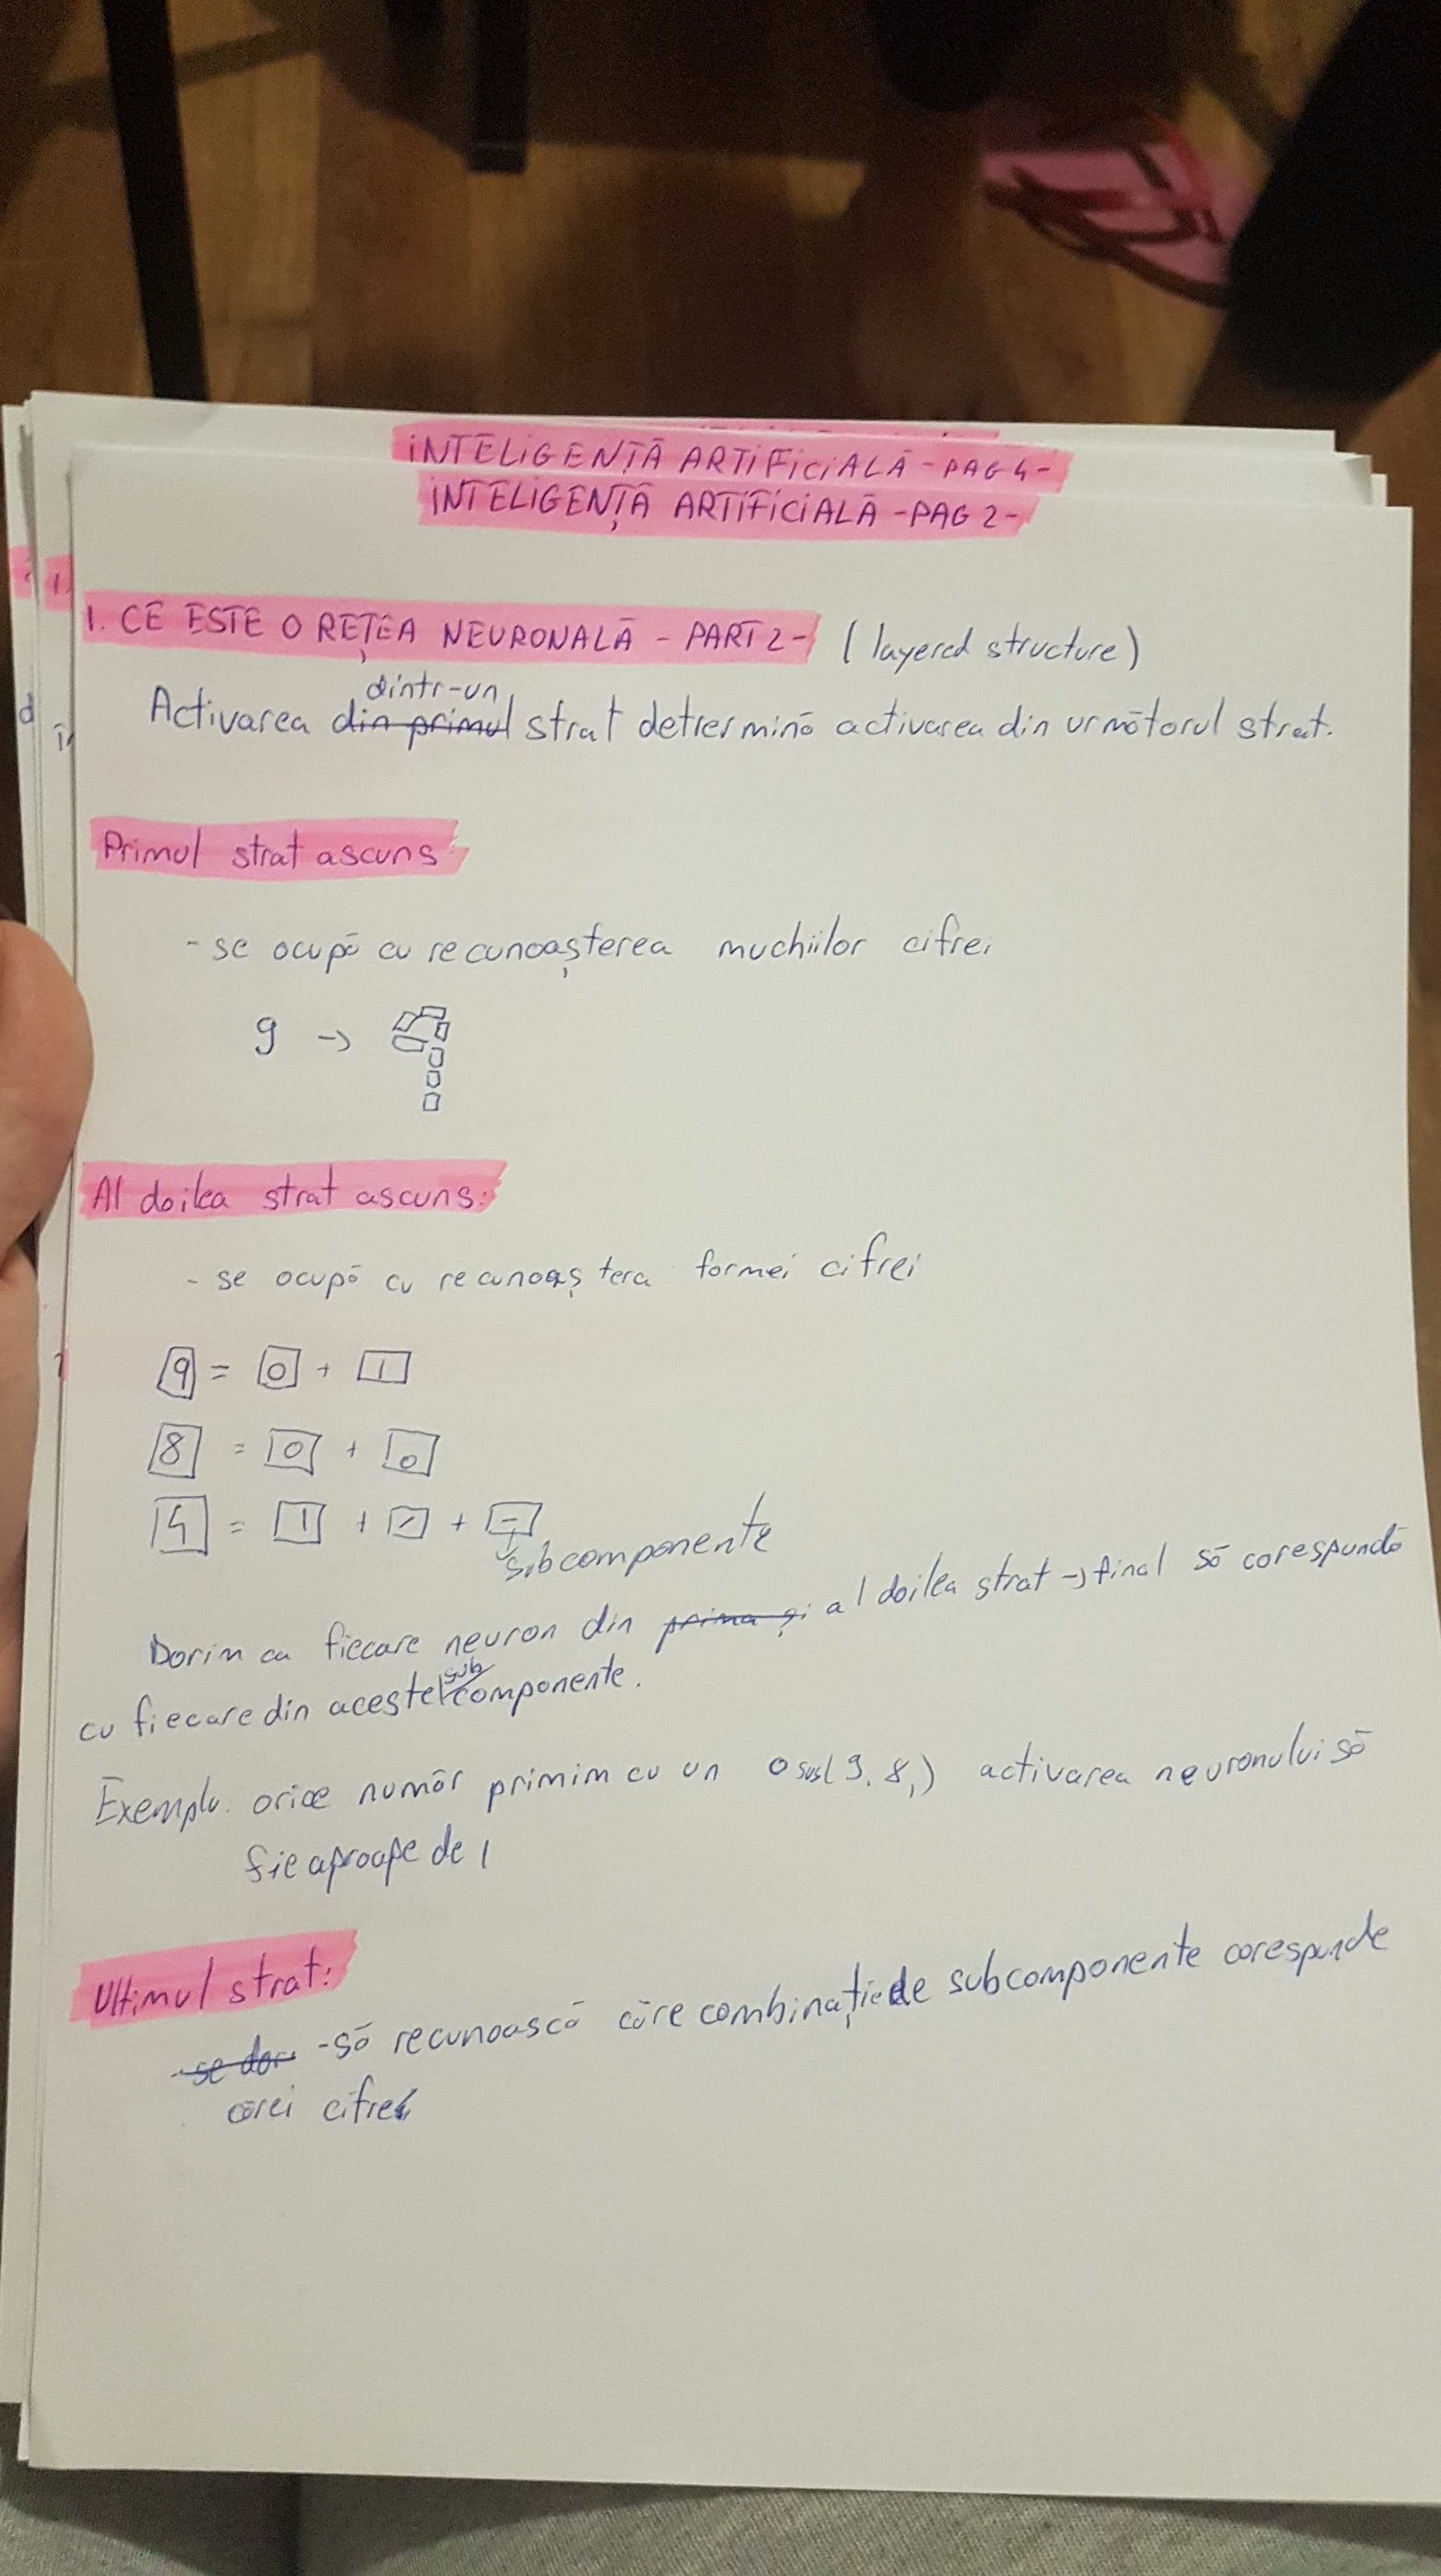 INTELIGENȚĂ ARTIFICIALĂ - PAG 4 -
INTELIGENȚĂ ARTIFICIALĂ - PAG 2 -
1. CE ESTE O REȚEA NEURONALĂ - PART 2 - (layered structure)
dintr-un
Activarea din primul strat detrermină activarea din următorul strat.
Primul strat ascuns
- se ocupă cu recunoașterea muchiilor cifrei
9 →
Al doilea strat ascuns:
- se ocupă cu recunoaștera formei cifrei
9 = o + 1
8 = o + o
4 = 1 + / + -
subcomponente
Dorim ca fiecare neuron din prima și al doilea strat → final să corespundă
sub
cu fiecare din aceste componente.
Exemplu: orice număr primim cu un o sus (9, 8,) activarea neuronului să
fie aproape de 1
Ultimul strat:
- se dor - să recunoască căre combinație de subcomponente corespunde
cărei cifre